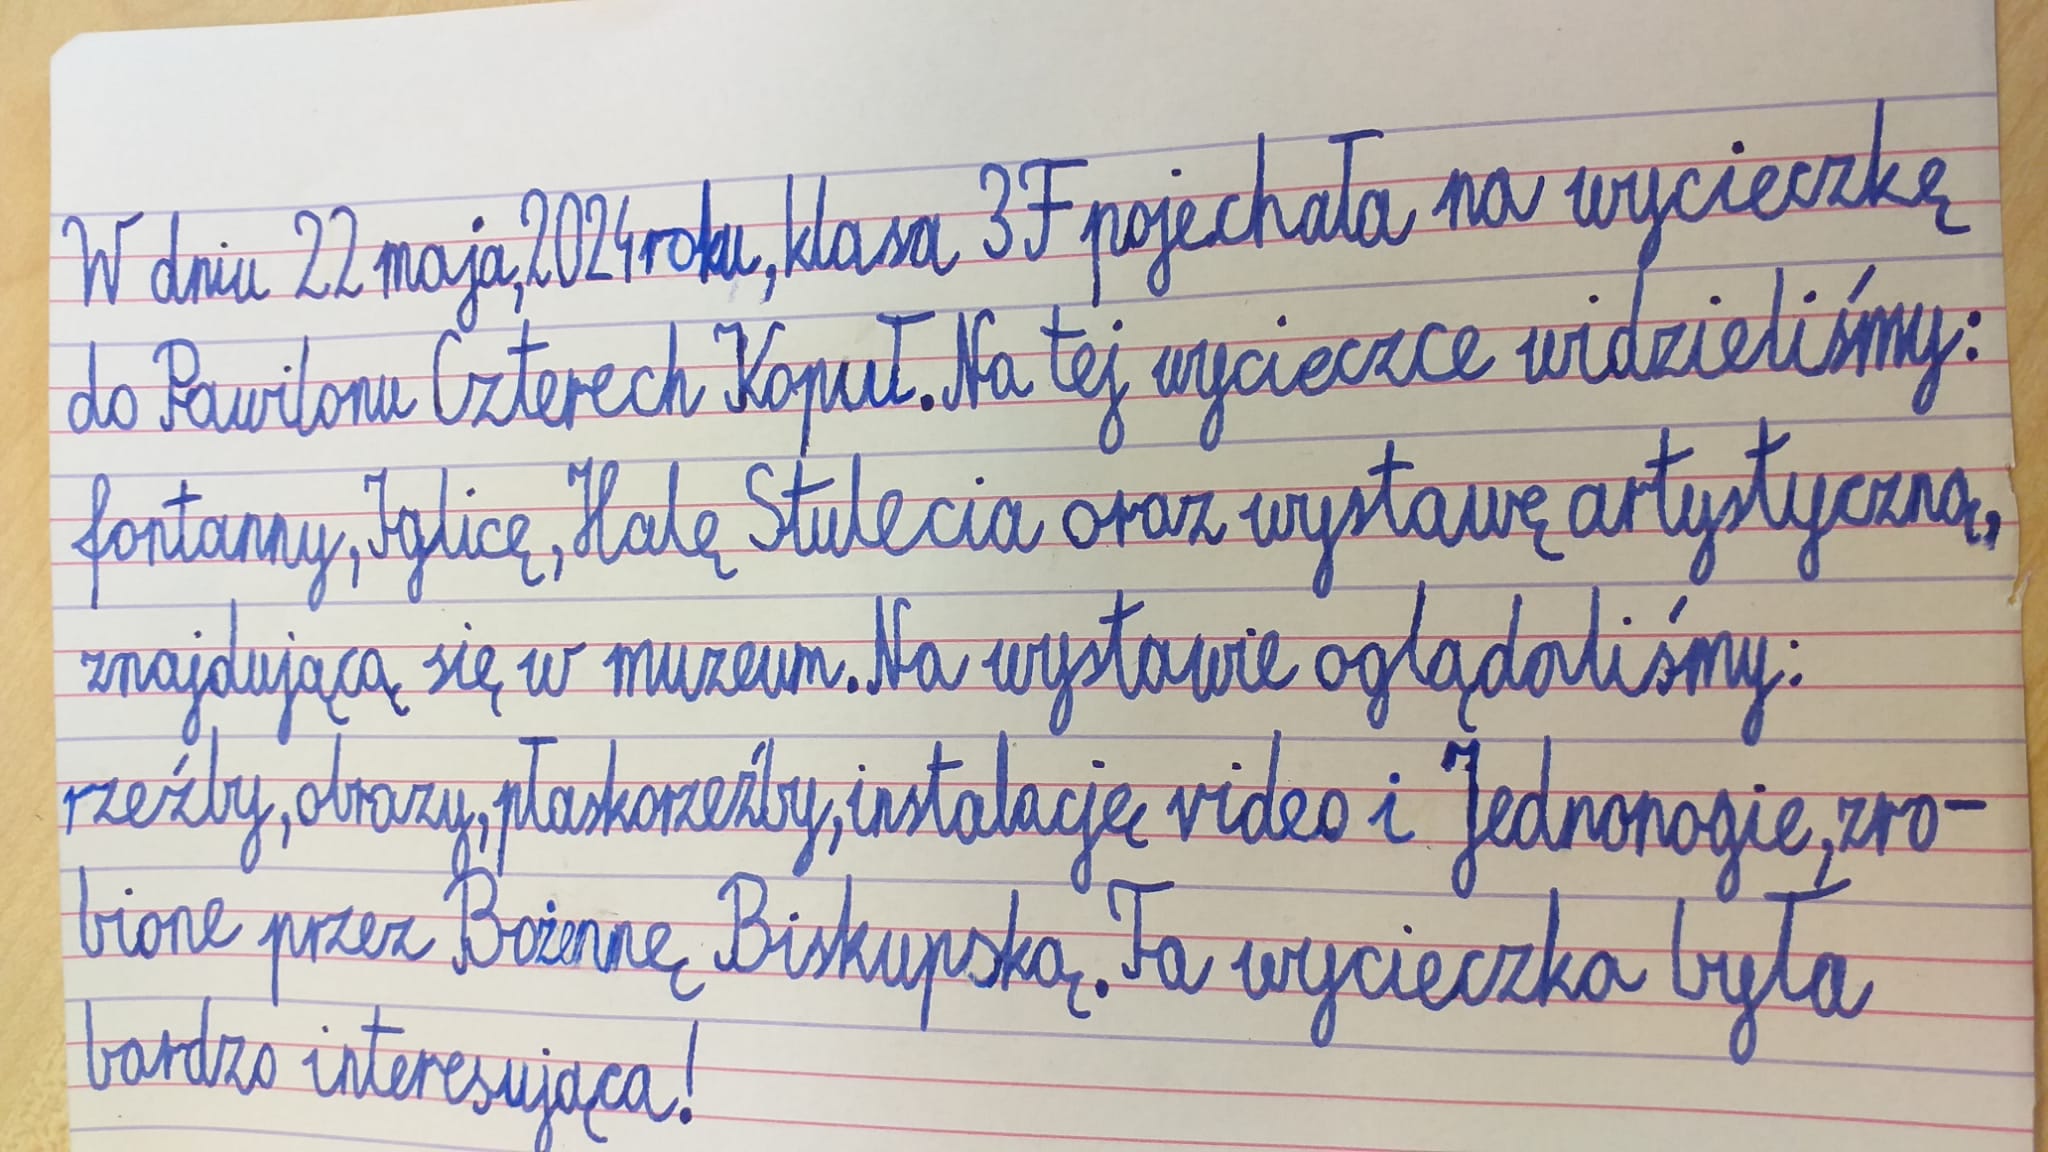 W dniu 22 maja, 2024 roku, klasa 3F pojechała na wycieczkę
do Pawilonu Czterech Kopuł. Na tej wycieczce widzieliśmy:
fontanny, Iglicę, Halę Stulecia oraz wystawę artystyczną,
znajdującą się w muzeum. Na wystawie oglądaliśmy:
rzeźby, obrazy, płaskorzeźby, instalację video i Jednonogie, zro-
bione przez Bożennę Biskupską. Ta wycieczka była
bardzo interesująca!